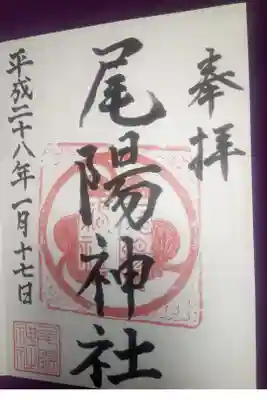 奉拝
尾陽神社
平成二十八年一月十七日